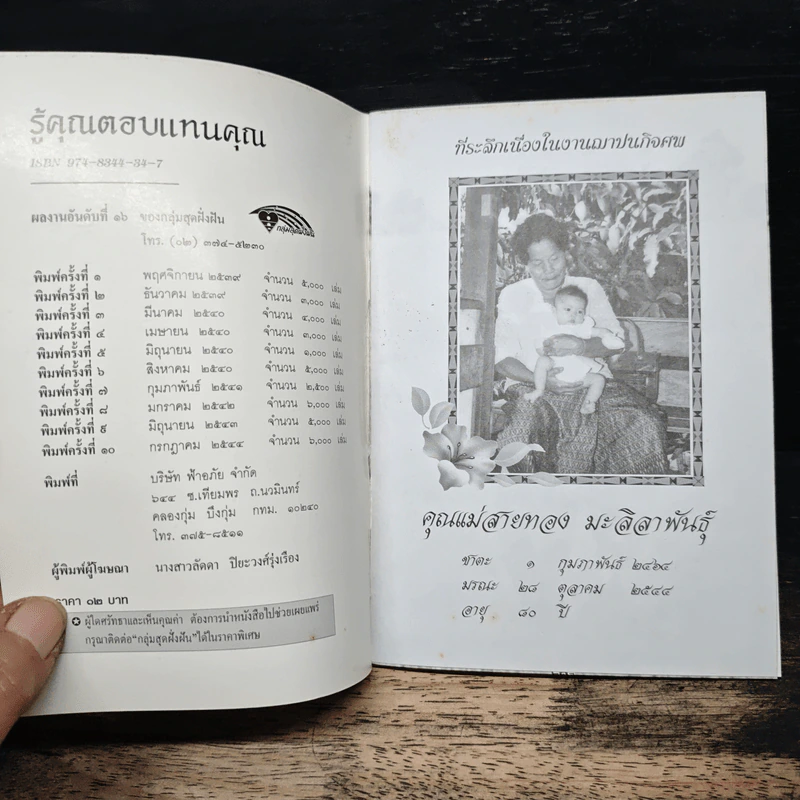 รู้คุณตอบแทนคุณ
ISBN 974-8344-34-7
ผลงานอันดับที่ ๑๖ ของกลุ่มสุดฝั่งฝัน
กลุ่มสุดฝั่งฝัน
โทร. (๐๒) ๓๗๔-๕๒๓๐
พิมพ์ครั้งที่ ๑ พฤศจิกายน ๒๕๓๙ จำนวน ๕,๐๐๐ เล่ม
พิมพ์ครั้งที่ ๒ ธันวาคม ๒๕๓๙ จำนวน ๓,๐๐๐ เล่ม
พิมพ์ครั้งที่ ๓ มีนาคม ๒๕๔๐ จำนวน ๔,๐๐๐ เล่ม
พิมพ์ครั้งที่ ๔ เมษายน ๒๕๔๐ จำนวน ๓,๐๐๐ เล่ม
พิมพ์ครั้งที่ ๕ มิถุนายน ๒๕๔๐ จำนวน ๑,๐๐๐ เล่ม
พิมพ์ครั้งที่ ๖ สิงหาคม ๒๕๔๐ จำนวน ๕,๐๐๐ เล่ม
พิมพ์ครั้งที่ ๗ กุมภาพันธ์ ๒๕๔๑ จำนวน ๒,๕๐๐ เล่ม
พิมพ์ครั้งที่ ๘ มกราคม ๒๕๔๒ จำนวน ๖,๐๐๐ เล่ม
พิมพ์ครั้งที่ ๙ มิถุนายน ๒๕๔๓ จำนวน ๕,๐๐๐ เล่ม
พิมพ์ครั้งที่ ๑๐ กรกฎาคม ๒๕๔๔ จำนวน ๖,๐๐๐ เล่ม
พิมพ์ที่ บริษัท ฟ้าอภัย จำกัด
๖๔๔ ซ.เทียมพร ถ.นวมินทร์
คลองกุ่ม บึงกุ่ม กทม. ๑๐๒๔๐
โทร. ๓๗๕-๘๕๑๑
ผู้พิมพ์ผู้โฆษณา นางสาวลัดดา ปิยะวงศ์รุ่งเรือง
ราคา ๑๒ บาท
✪ ผู้ใดศรัทธาและเห็นคุณค่า ต้องการนำหนังสือไปช่วยเผยแพร่
กรุณาติดต่อ"กลุ่มสุดฝั่งฝัน"ได้ในราคาพิเศษ
ที่ระลึกเนื่องในงานฌาปนกิจศพ
คุณแม่สายทอง มะลิลาพันธุ์
ชาตะ ๑ กุมภาพันธ์ ๒๔๖๔
มรณะ ๒๘ ตุลาคม ๒๕๔๔
อายุ ๘๐ ปี